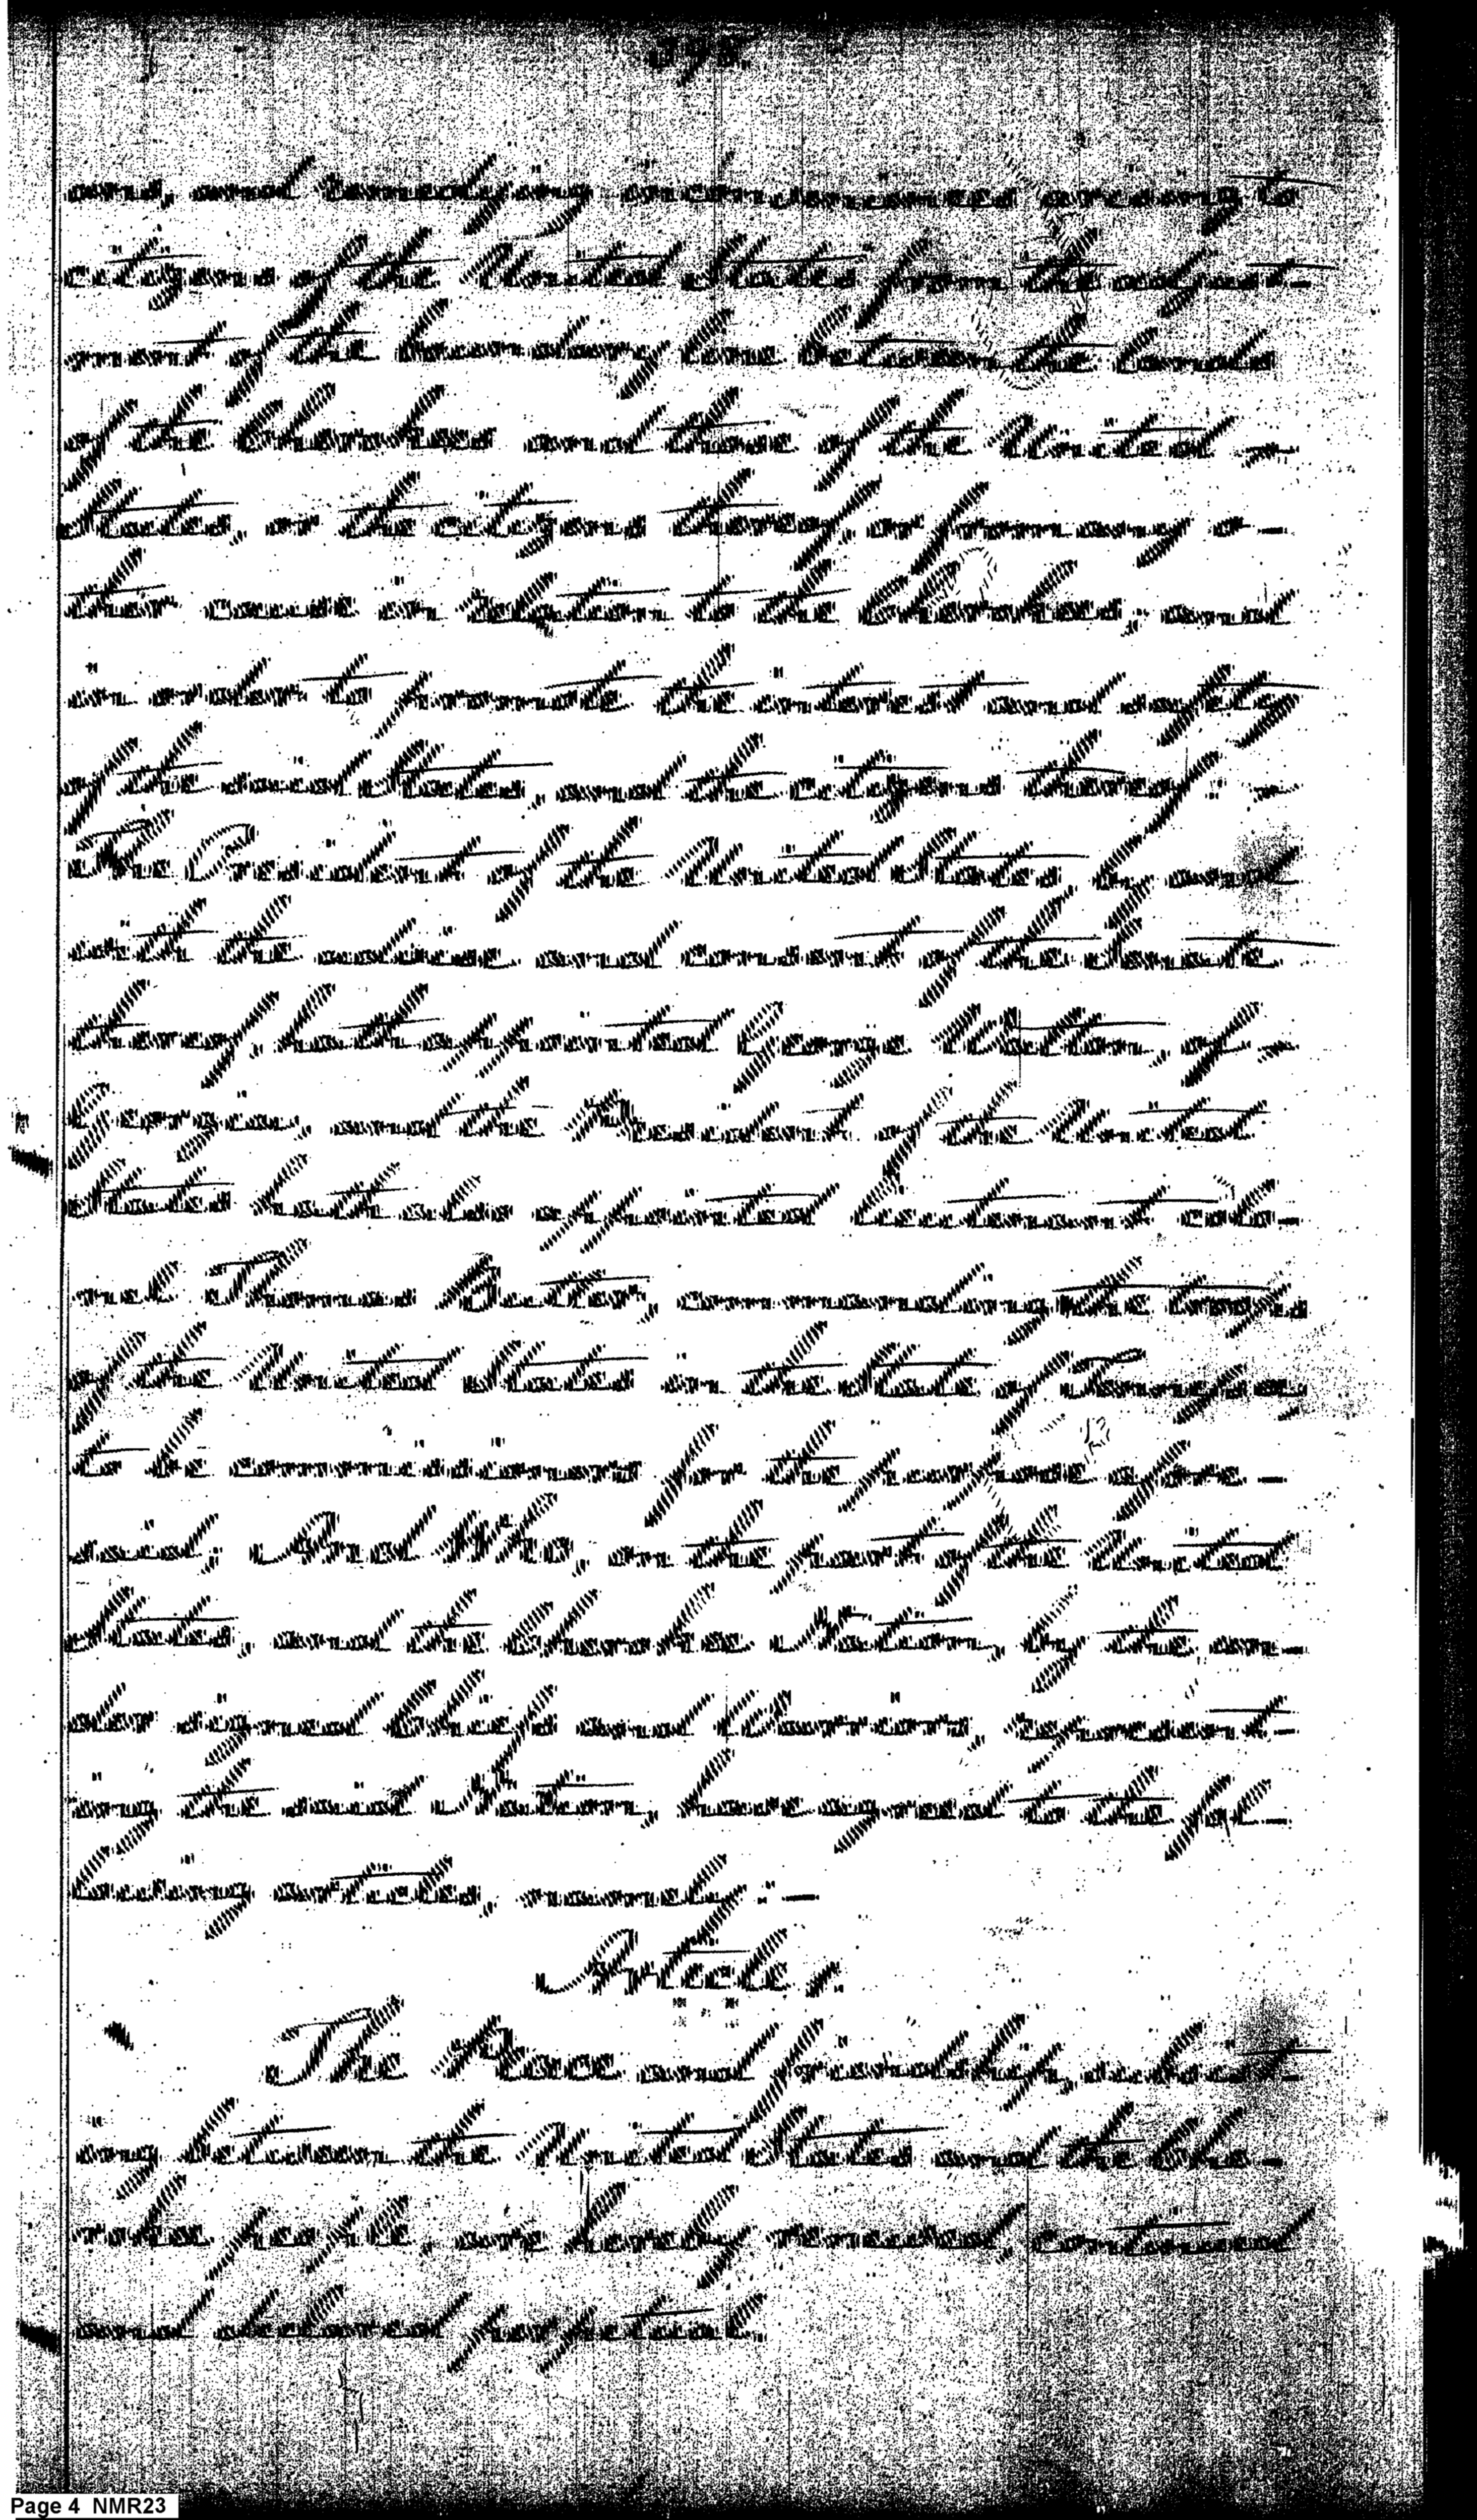 ons, and remedying inconveniences arising to
citizens of the United States from the adjust-
ment of the boundary line between the lands
of the Cherokees and those of the United -
States, or the citizens thereof, or from any o-
ther cause in relation to the Cherokees; and
in order to promote the interest and safety
of the said States, and the citizens thereof: -
The President of the United States, by and
with the advice and consent of the Senate
thereof, hath appointed George Walton, of -
Georgia, and the President of the United
States hath also appointed Lieutenant colo-
nel Thomas Butler, commanding the troops
of the United States in the State of Tennessee,
to be commissioners for the purpose afore-
said; And Who, on the part of the United
States, and the Cherokee Nation, by the un-
der signed Chiefs and Warriors, represent-
ing the said Nation, have agreed to the fol-
lowing articles, namely :-
Article 1.
The Peace and friendship, subsist-
ing between the United States and the Che-
rokee people, are hereby renewed, continued
and declared perpetual.
Page 4 NMR23